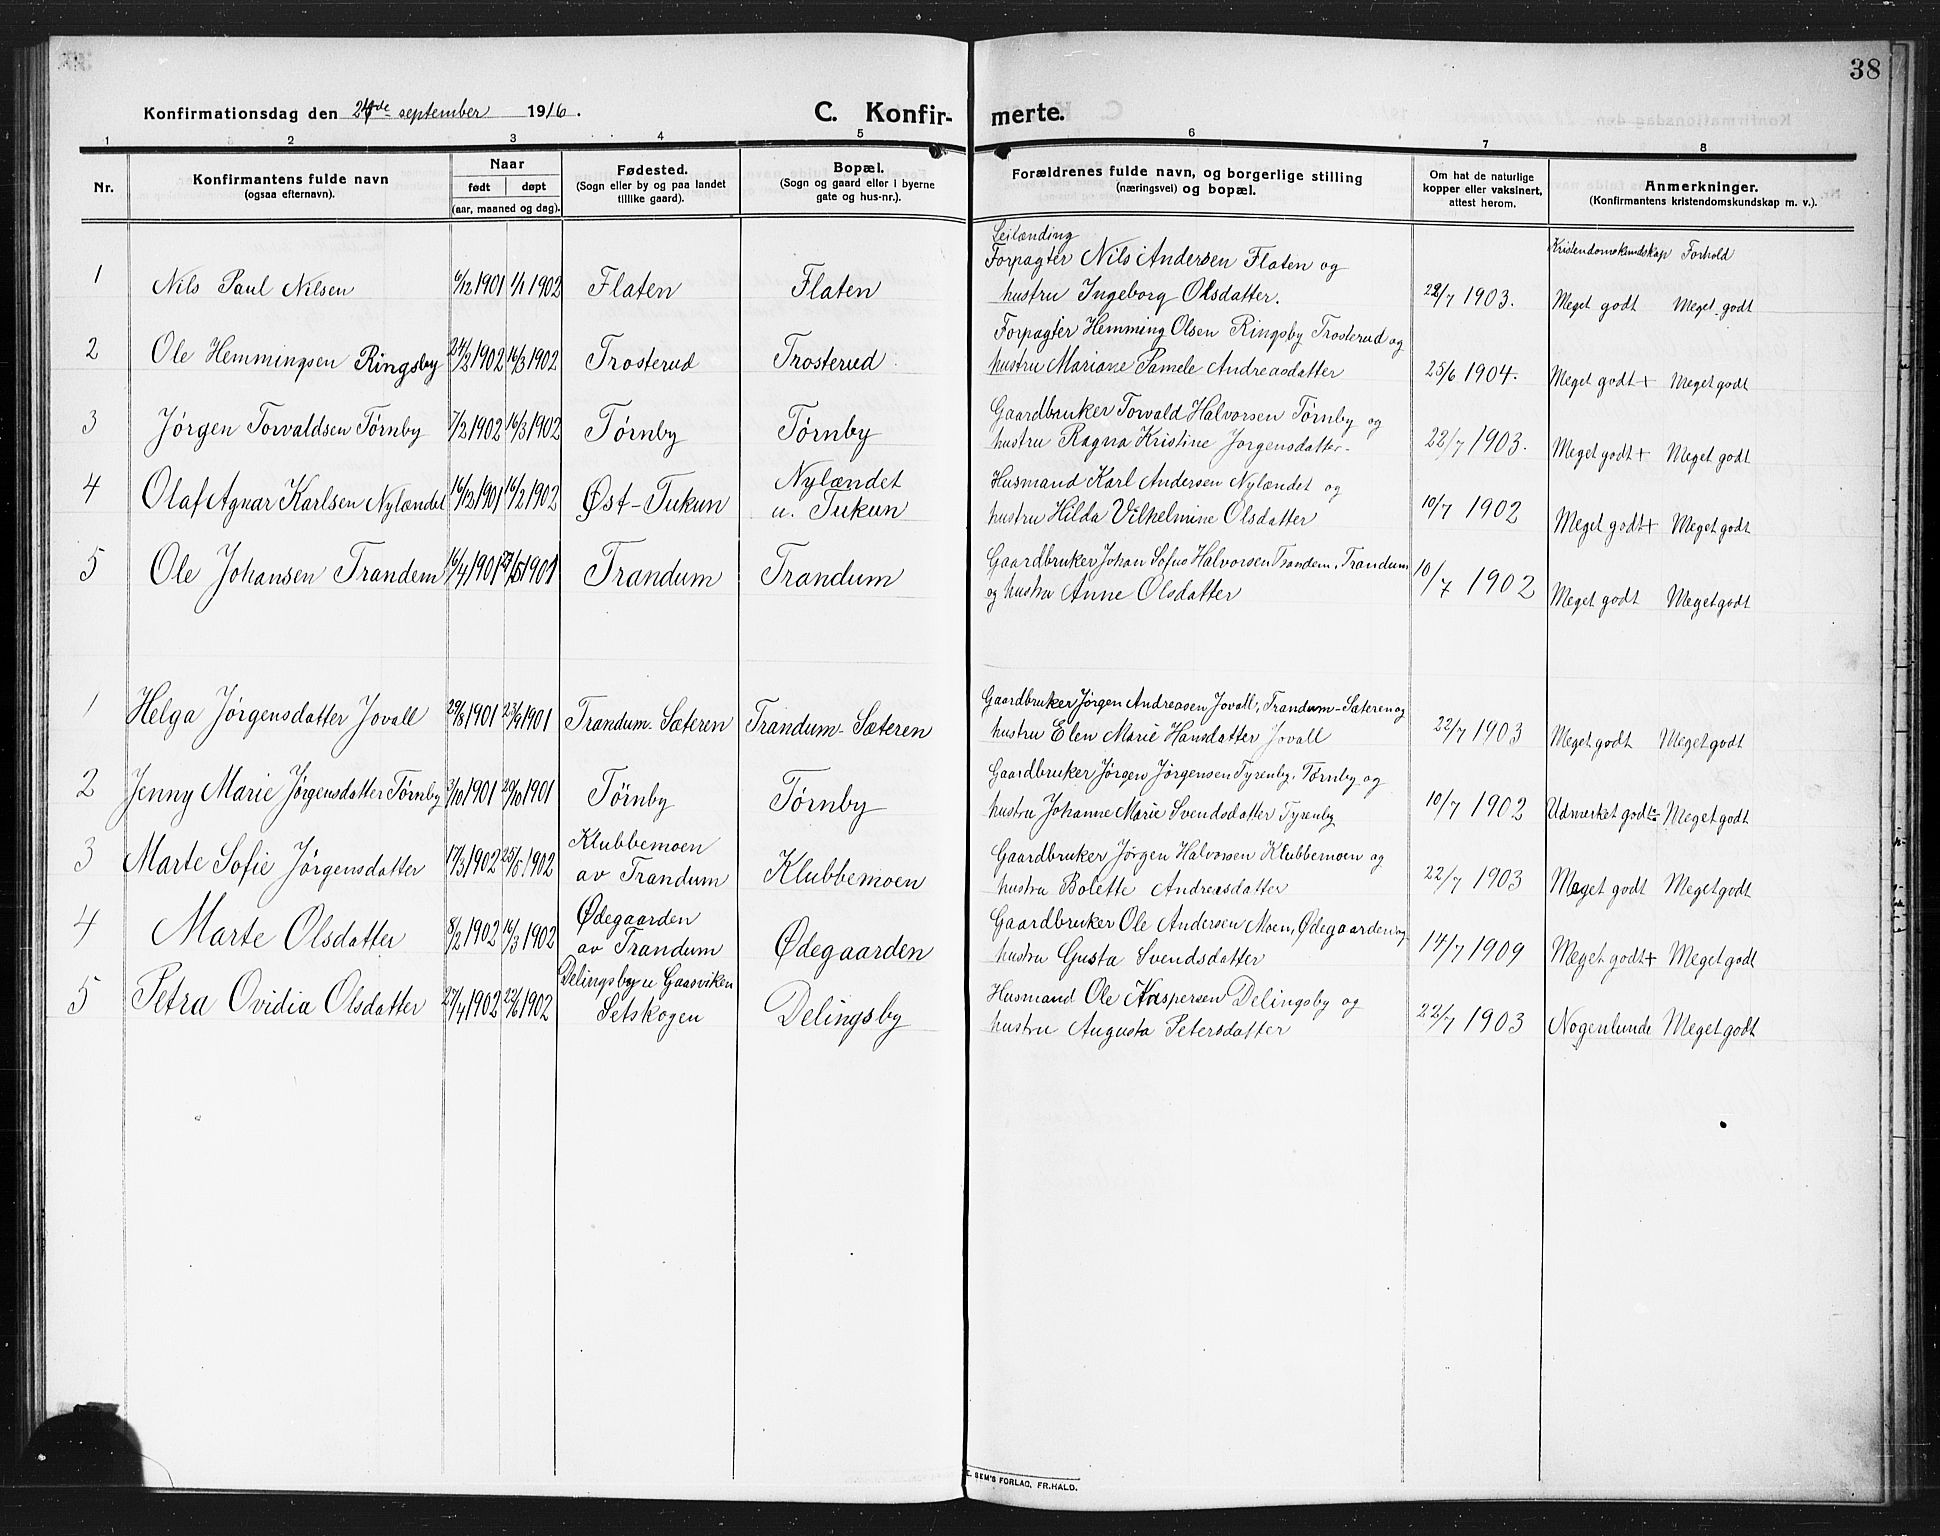 38
Konfirmationsdag den 24de september 1916.
C. Konfir- merte.
1 2 3 4 5 6 7 8
Nr.
Konfirmantens fulde navn
(ogsaa efternavn).
Naar
født døpt
(aar, maaned og dag).
Fødested.
(Sogn eller by og paa landet
tillike gaard).
Bopæl.
(Sogn og gaard eller i byerne
gate og hus-nr.).
Forældrenes fulde navn, og borgerlige stilling
(næringsvei) og bopæl.
Om hat de naturlige
kopper eller vaksinert,
attest herom.
Anmerkninger.
(Konfirmantens kristendomskundskap m. v.).
Kristendomskundskap Forhold
Leilænding
1 Nils Paul Nilsen 6/12 1901 1/1 1902 Flaten Flaten Forpagter Nils Andersen Flaten og
hustru Ingeborg Olsdatter. 22/7 1903. Meget godt Meget godt
2 Ole Hemmingsen Ringsby 24/2 1902 16/3 1902 Trosterud Trosterud Forpagter Hemming Olsen Ringsby Trosterud og
hustru Mariane Pamele Andreasdatter 25/6 1904. Meget godt + Meget godt
3 Jørgen Torvaldsen Tørnby 7/2 1902 16/3 1902 Tørnby Tørnby Gaardbruker Torvald Halvorsen Tørnby og
hustru Ragna Kristine Jørgensdatter. 22/7 1903. Meget godt + Meget godt
4 Olaf Agnar Karlsen Nylændet 16/12 1901 16/2 1902 Øst-Tukun Nylændet
u. Tukun Husmand Karl Andersen Nylændet og
hustru Hilda Vilhelmine Olsdatter 10/7 1902 Meget godt + Meget godt
5 Ole Johansen Trandem 16/4 1901 27/5 1901 Trandum Trandum Gaardbruker Johan Sofus Halvorsen Trandem, Trandum
og hustru Anne Olsdatter 10/7 1902 Meget godt Meget godt
1 Helga Jørgensdatter Jovall 29/8 1901 23/9 1901 Trandum-Sæteren Trandum-Sæteren Gaardbruker Jørgen Andreasen Jovall, Trandum-Sæteren og
hustru Elen Marie Hansdatter Jovall 22/7 1903 Meget godt Meget godt
2 Jenny Marie Jørgensdatter Tørnby 3/10 1901 20/10 1901 Tørnby Tørnby Gaardbruker Jørgen Jørgensen Tyrenby, Tørnby og
hustru Johanne Marie Svendsdatter Tyrenby 10/7 1902 Udmerket godt Meget godt
3 Marte Sofie Jørgensdatter 17/3 1902 25/5 1902 Klubbemoen
av Trandum Klubbemoen Gaardbruker Jørgen Halvorsen Klubbemoen og
hustru Bolette Andreasdatter 22/7 1903 Meget godt Meget godt
4 Marte Olsdatter 8/2 1902 16/3 1902 Ødegaarden
av Trandum Ødegaarden Gaardbruker Ole Andersen Moen, Ødegaarden og
hustru Gusta Svendsdatter 14/7 1909 Meget godt + Meget godt
5 Petra Ovidia Olsdatter 27/4 1902 22/6 1902 Delingsby u Gaasviken
Setskogen Delingsby Husmand Ole Kaspersen Delingsby og
hustru Augusta Petersdatter 22/7 1903 Nogenlunde Meget godt
E. SEM'S FORLAG, FR.HALD.